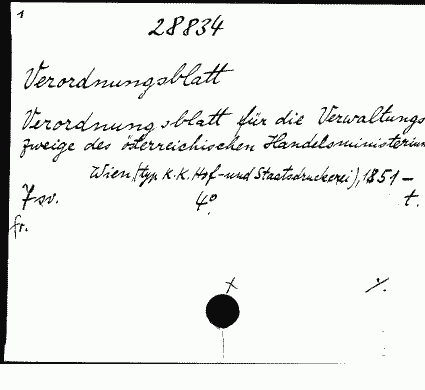 1
28834
Verordnungsblatt
Verordnungsblatt für die Verwaltungs
zweige des österreichischen Handelsministerium
Wien, (typ. K. K. Hof- und Staatsdruckerei), 1851 –
7 sv. 4° t.
fr.
x ./.